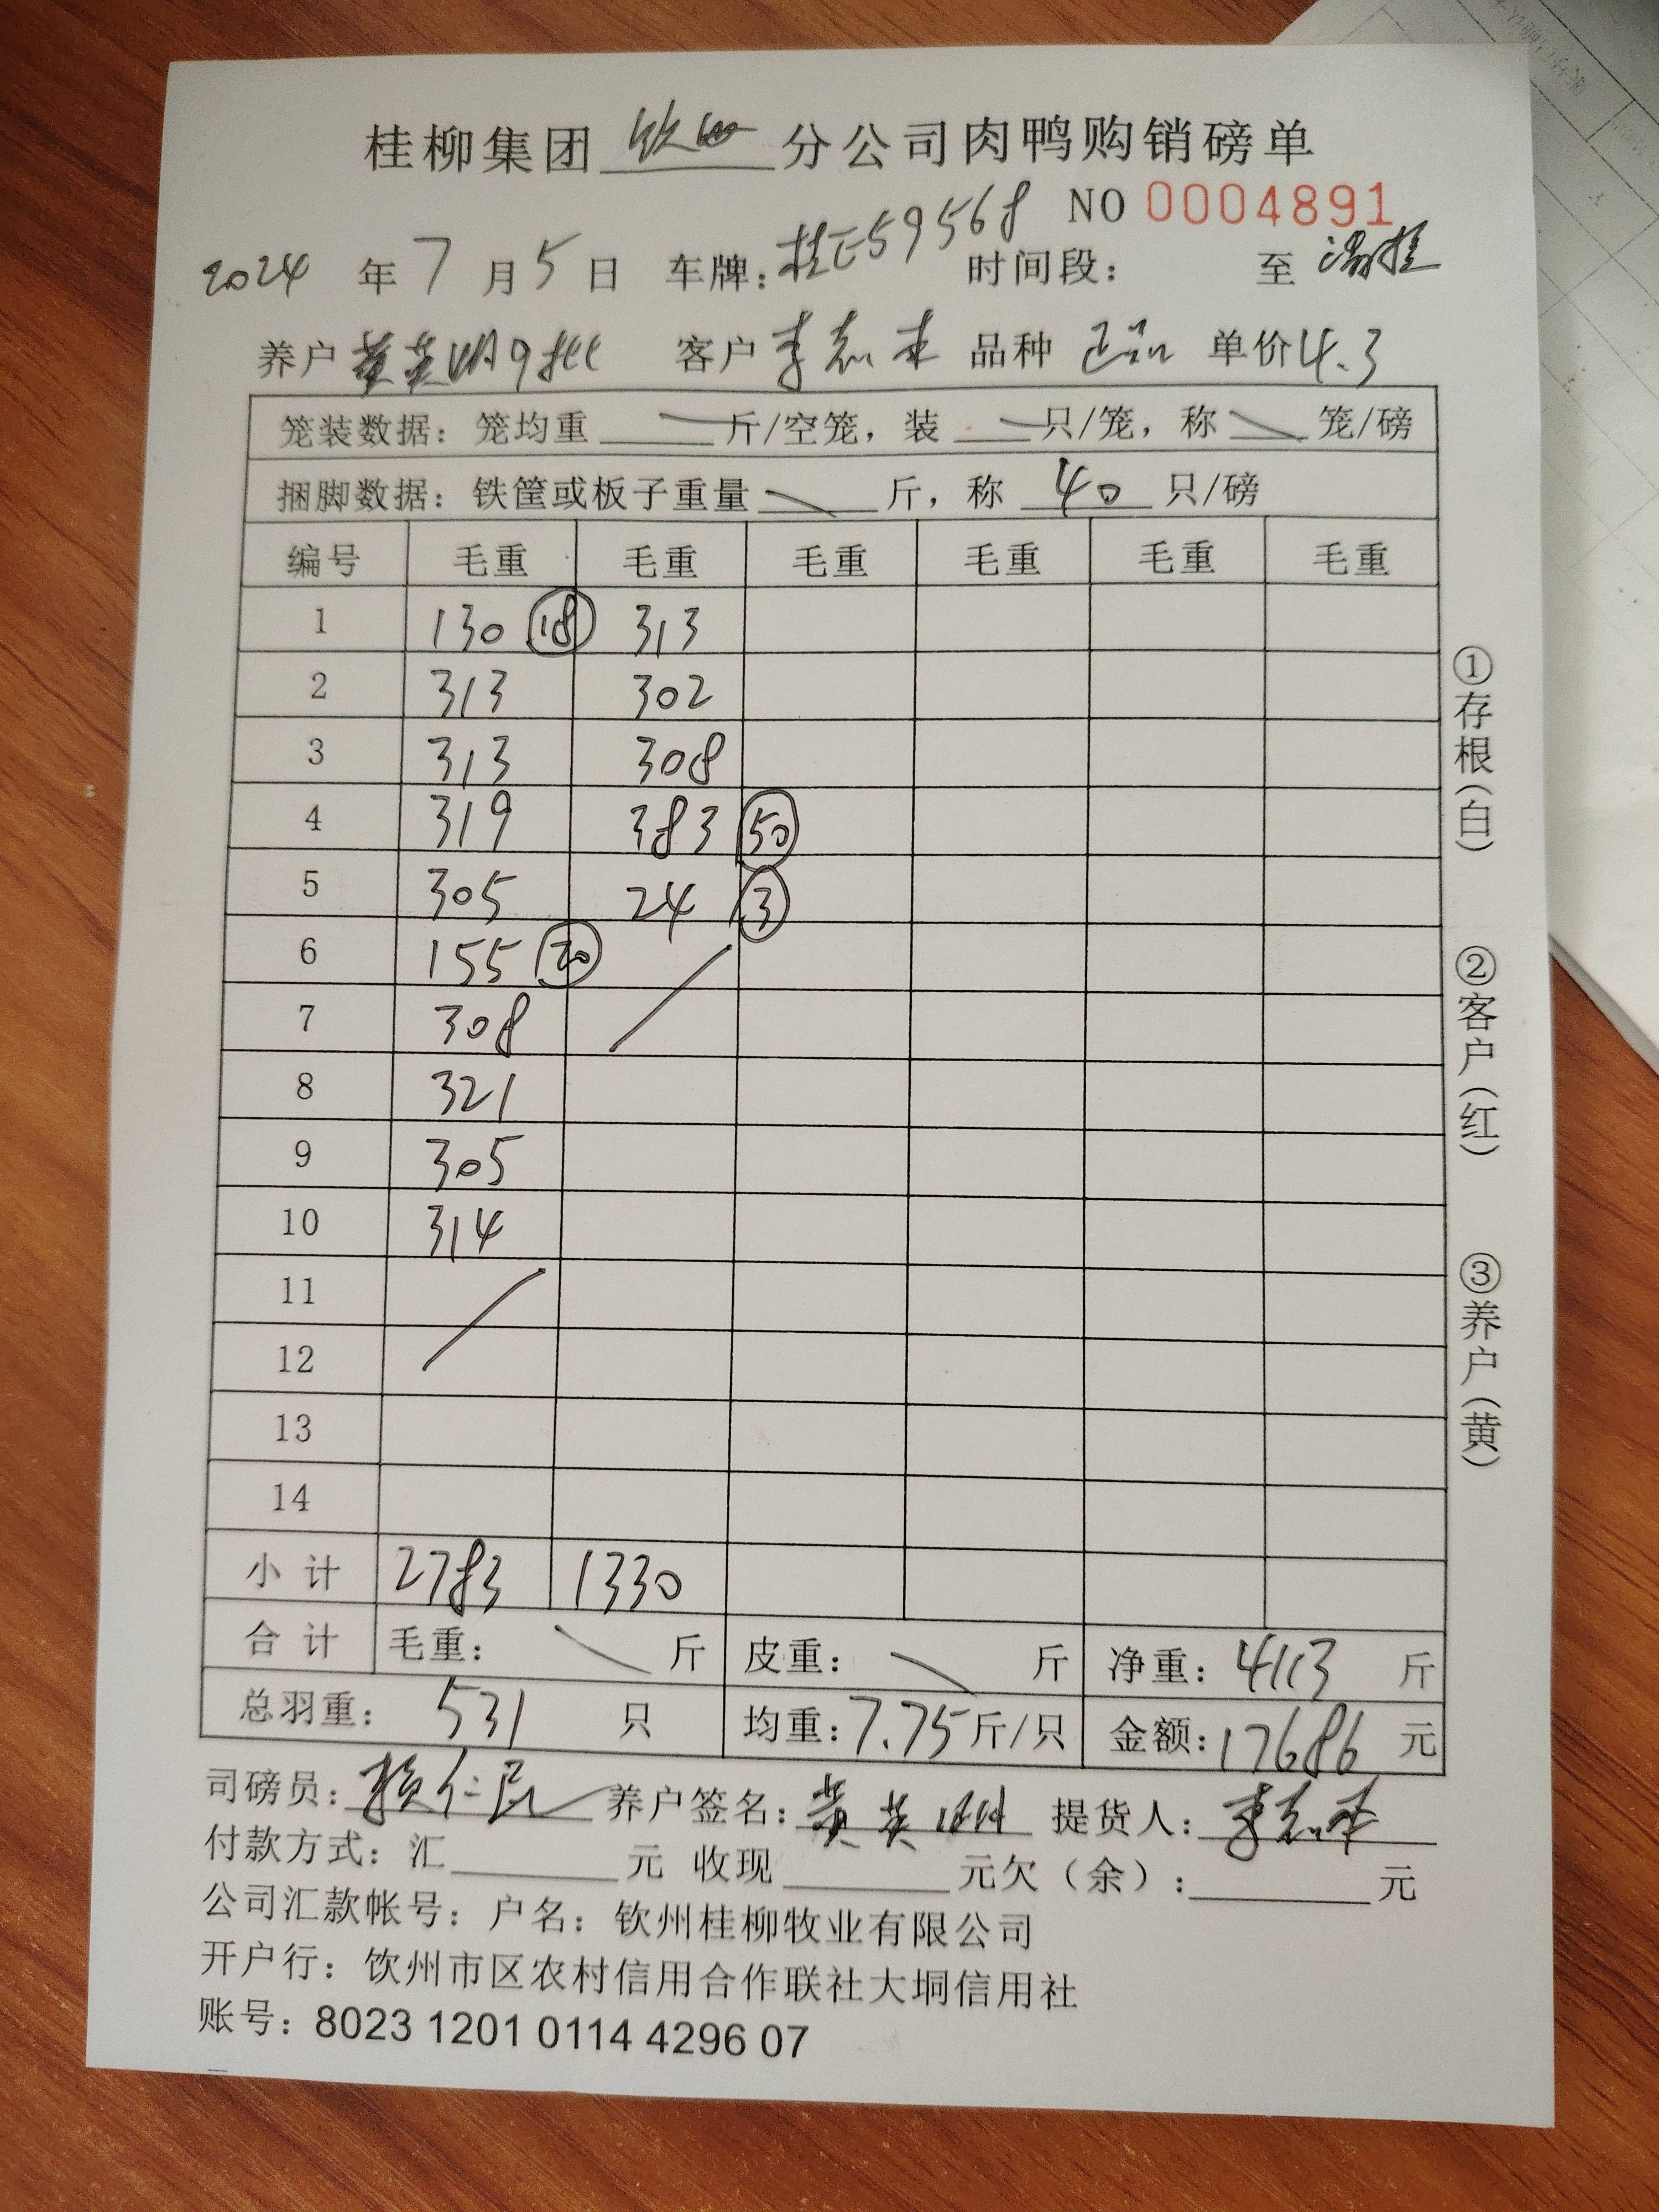 桂柳集团 钦州 分公司肉鸭购销磅单
NO 0004891
2024 年 7 月 5 日 车牌: 桂E59568 时间段: 至
养户 黄英明9批 客户 李志 品种 正品 单价 4.3
笼装数据: 笼均重 斤/空笼, 装 只/笼, 称 笼/磅
捆脚数据: 铁筐或板子重量 斤, 称 40 只/磅
编号 毛重 毛重 毛重 毛重 毛重 毛重
1 130 ⑱ 313
2 313 302
3 313 308
4 319 383 ㊿
5 305 24 ③
6 155 ⑳
7 308
8 321
9 305
10 314
11
12
13
14
小计 2783 1330
合计 毛重: 斤 皮重: 斤 净重: 4113 斤
总羽重: 531 只 均重: 7.75 斤/只 金额: 17686 元
司磅员: 养户签名: 黄英明 提货人: 李志
付款方式: 汇 元 收现 元欠(余): 元
公司汇款帐号: 户名: 钦州桂柳牧业有限公司
开户行: 钦州市区农村信用合作联社大垌信用社
账号: 8023 1201 0114 4296 07
①存根(白)
②客户(红)
③养户(黄)